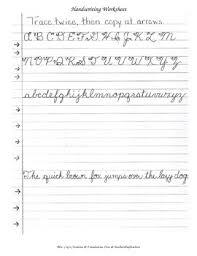 Handwriting Worksheet
Trace twice, then copy at arrows.
A B C D E F G H I J K L M
N O P Q R S T U V W X Y Z
abcdefghijklmnopqrstuvwxyz
The quick brown fox jumps over the lazy dog